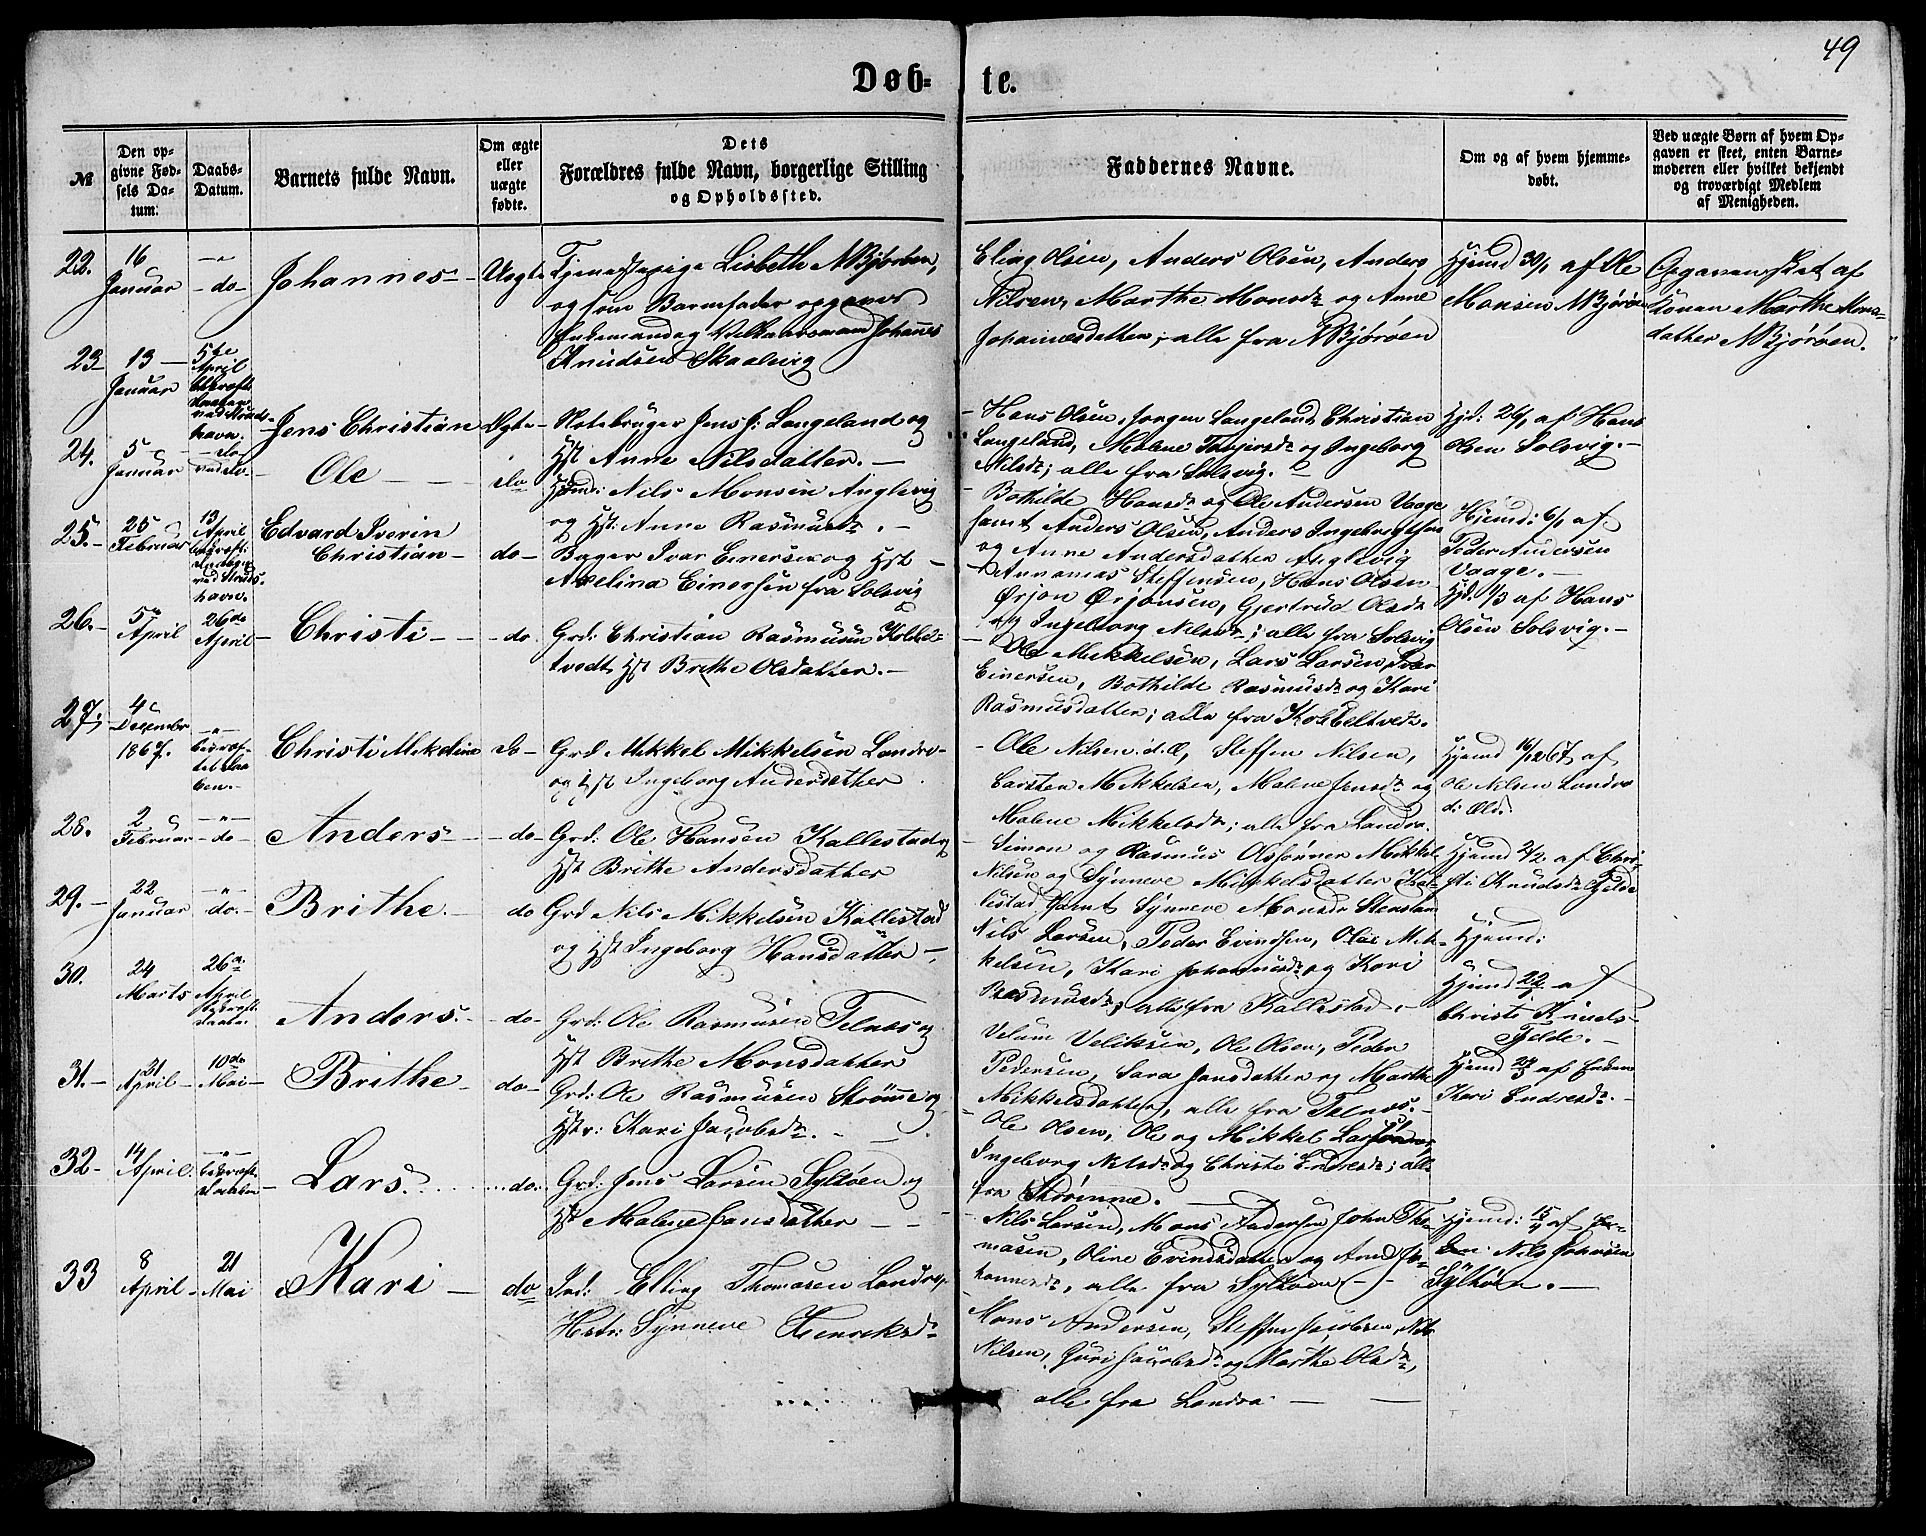 49
Døb-
te.
№
Den op-
givne Fød-
sels Da-
tum.
Daabs-
Datum.
Barnets fulde Navn.
Om ægte
eller
uægte
fødte.
Dets
Forældres fulde Navn, borgerlige Stilling
og Opholdssted.
Faddernes Navne.
Om og af hvem hjemme-
døbt.
Ved uægte Børn af hvem Op-
gaven er skeet, enten Barne-
moderen eller hvilket bekjendt
og troværdigt Medlem
af Menigheden.
22.
16
Januar
-"-
- do -
Johannes -
Uægte
Tjenestepige Lisbeth NBjørøen,
og som Barnefader opgaves
Johannes
Knudsen Skaalvig
Eling Olsen, Anders Olsen, Anders
Nilsen, Marthe Monsdr og Anne
Johannesdatter; alle fra NBjørøen
Hjemd 30/1 af Ole
Monsen NBjørøen
Opgaven skeet af
Konen Marthe Mons-
datter NBjørøen.
23
13 -
Januar
5te
April
havn.
Jens Christian
Ægte -
Notebruger Jens J. Langeland og
Hst Anne Nilsdatter. -
- Hans Olsen, Jørgen Langeland, Christian
Langeland, Malene og Ingeborg
Nilsdr; alle fra Solsvig. -
Hjd: 26/1 af Hans
Olsen Solsvig. -
24.
5
Januar
- do
Ole - -
do
Hmd: Nils Monsen Anglevig
og Hst: Anne Rasmusdr. -
- Bothilde Hansdr og Ole Andersen Vaage
samt Anders Olsen, Anders Ingebregtsen
og Anne Andersdatter Anglevig
Hjemd: 6/1 af
Peder Andersen
Vaage. -
25. -
25
Februar
13
April
havn.
Edvard Iverin
Christian -
do -
Bager Ivar Einersen og Hst -
Axelina Einersen fra Solsvig
- Annanias Steffensen, Hans Olsen
Ørjan Ørjansen, Gjertrud Olsdr
og Ingeborg Nilsdr; alle fra Solsvig
Hjd: 1/3 af Hans
Olsen Solsvig. -
26. -
5
April
26de
April -
Christi - -
- do
Grd: Christian Rasmusen Kobbel-
tvedt, Hst Brithe Olsdatter. -
- Ole Mikkelsen, Lars Larsen, Iver
Einersen, Bothilde Rasmusdr og Kari
Rasmusdatter; alle fra Kobbeltvedt.
27.
4
December
1867.
-"-
Christi Mekeline
do -
Grd Mikkel Mikkelsen Landro
og Hst Ingeborg Andersdatter
- Ole Nilsen d.Æ, Steffen Nilsen,
Carsten Mikkelsen, Malene Jensdr og
Malene Mikkelsdr; alle fra Landro.
Hjemd 16/12 67 af
Ole Nilsen Landro
d: Æld:
28.
2
Februar
-"-
- do
Anders -
- do -
Grd: Ole Hansen Kallestad og
Hst Brithe Andersdatter
- Simon og Rasmus Olssønner, Mikkel
Nilsen og Synneve Mikkelsdatter Kal-
lestad, samt Synneve Monsdr
Hjemd 2/2 af Chri-
sti Knudsdr Fjelde
29. -
22
Januar
-"-
do. -
Brithe. -
do
Grd Nils Mikkelsen Kallestad
og Hst Ingeborg Hansdatter -
Nils Larsen, Peder Evindsen, Ole Mik-
kelsen, Kari Johannesdr og Kari
Rasmusdr; alle fra Kallestad. -
Hjemd:
Hjemd 22/1 af
Christi Knuds-
Fjelde. -
30.
24
Marts
26
April
Anders. -
- do -
Grd: Ole Rasmusen Telnæs og
Hst Brithe Monsdatter
Ole Olsen, Peder
Pedersen, Sara Jansdatter og Marthe
Mikkelsdatter, alle fra Telnæs. -
Hjemd af Enken
Kari Endresdr. -
31. -
April -
10de
Mai -
Brithe -
do -
Grd: Ole Rasmusen Strømme og
Hstr: Kari Jacobsdr. -
- Ole Olsen, Ole og Mikkel Larssønner,
Ingeborg Nilsdr og Christi Endresdr; alle
fra Strømme. -
32 -
14
April.
-"-
Lars. -
- do.
Grd: Jens Larsen Syltøen og
Hst Malene Hansdatter - -
- Nils Larsen, Mons Andersen, John Tho-
masen, Oline Evindsdatter og Anne Jo-
hannesdr, alle fra Syltøen -
Hjemd: 15/4 af
Nils Johnsen
Syltøen. -
33
8
April -
21
Mai
Kari -
do
Ind: Elling Thomasen Landro,
Hstr: Synneve Henriksdr
Mons Andersen, Steffen Jacobsen, Nils
Nilsen, Guri Jacobsdr og Marthe Olsdr,
alle fra Landro - -